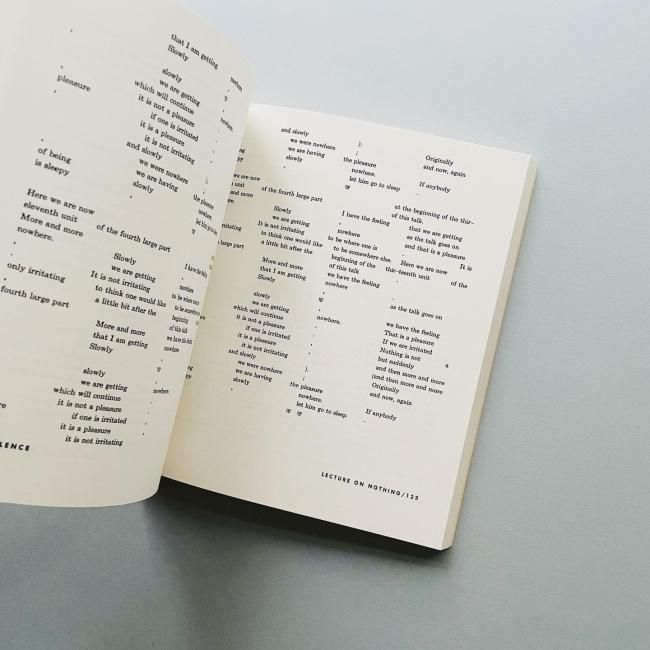 that I am getting nowhere
Slowly
slowly
we are getting
pleasure
which will continue nowhere.
it is not a pleasure
if one is irritated
it is a pleasure
it is not irritating
and slowly );
of being we were nowhere ;
is sleepy we are having the pleasure
slowly nowhere.
let him go to
Here we are now
eleventh unit of the fourth large part
More and more I have the
nowhere.
Slowly
we are getting nowhere
only irritating It is not irritating to be where one
to think one would like to be somewhere
fourth large part a little bit after the beginning
of this talk
More and more we have the
that I am getting nowhere
Slowly
slowly
we are getting nowhere
which will continue
it is not a pleasure
if one is irritated
it is a pleasure
it is not irritating
LENCE
and slowly );
we were nowhere ; Originally
we are having the pleasure and now, again
slowly nowhere.
let him go to sleep If anybody
we are now
unit of the fourth large part at the beginning of the thir-
and more I have the feeling of this talk.
Slowly that we are getting
we are getting nowhere as the talk goes on
irritating It is not irritating to be where one is and that is a pleasure
to think one would like to be somewhere else. It is
large part a little bit after the beginning of the Here we are now
of this talk this-teenth unit of the
More and more we have the feeling
that I am getting nowhere
Slowly
as the talk goes on
slowly
we are getting nowhere. we have the feeling
which will continue That is a pleasure
it is not a pleasure If we are irritated
if one is irritated Nothing is not a
it is a pleasure but suddenly
it is not irritating and then more and more
and slowly ); (and then more and more
we were nowhere ; Originally
we are having the pleasure and now, again
slowly nowhere.
let him go to sleep If anybody
LECTURE ON NOTHING/123